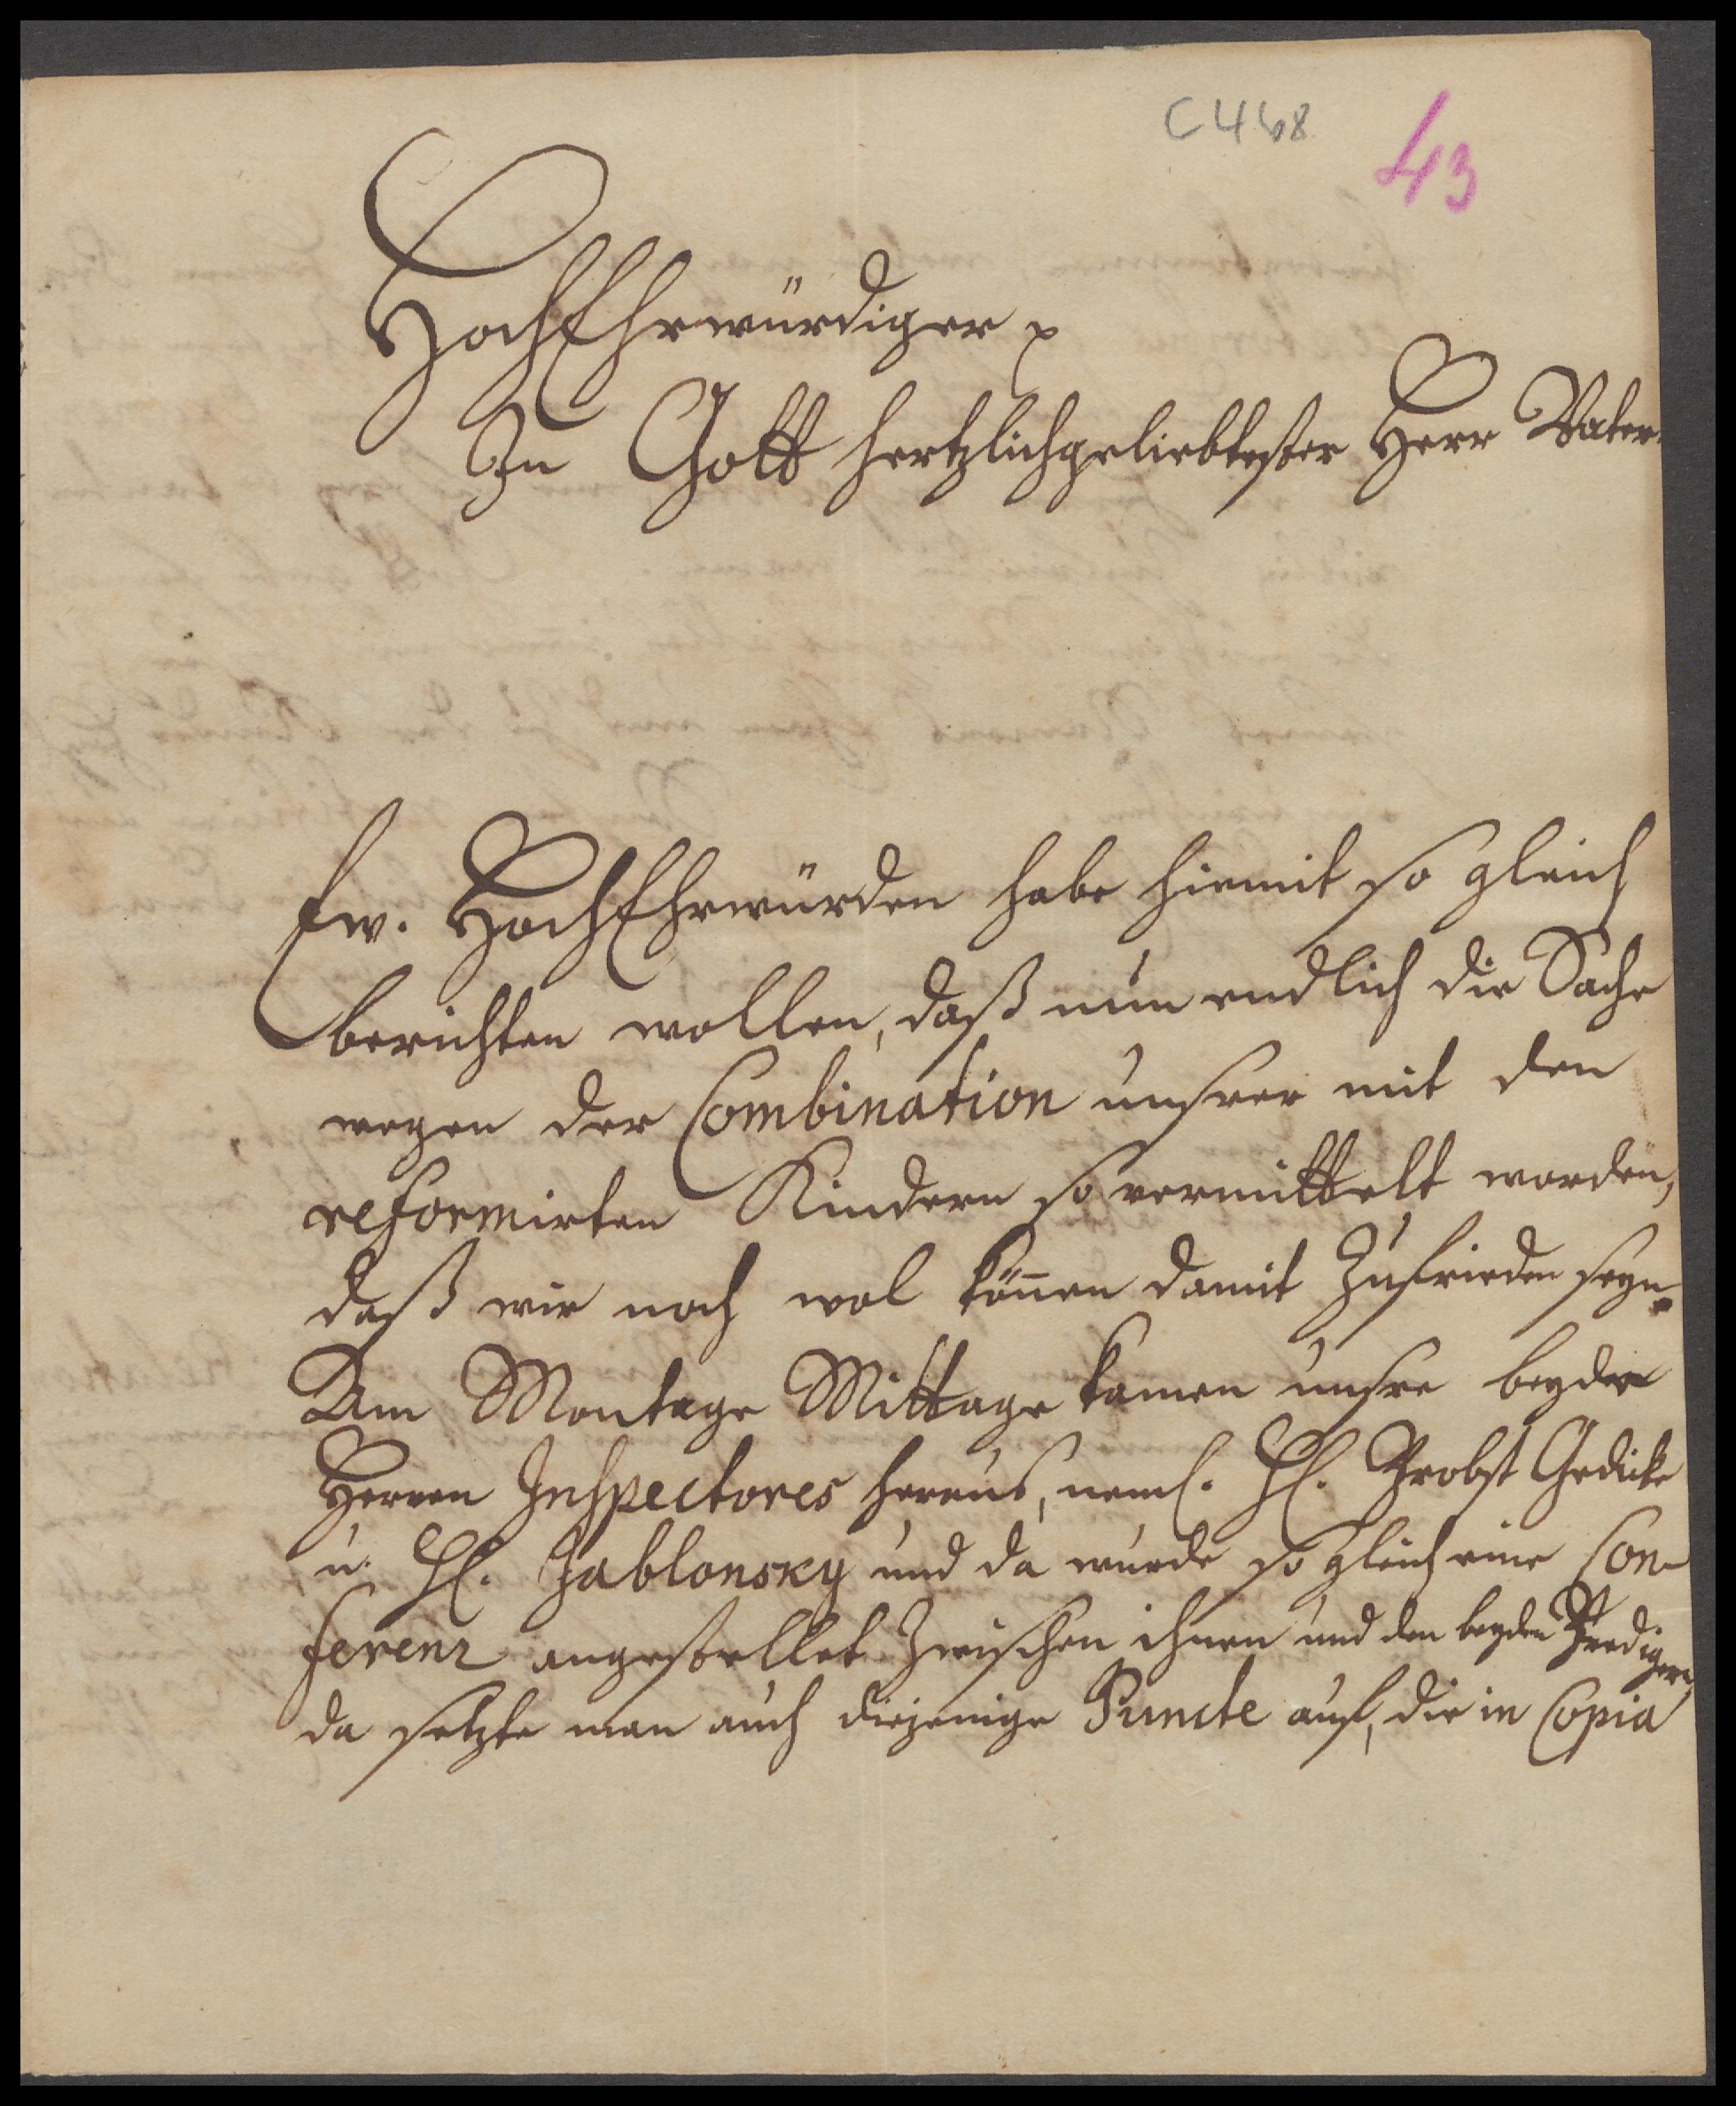 C 468
43
HochEhrwürdiger
In Gott hertzlichgeliebtester Herr Vater
Ew. HochEhrwürden habe hiemit so gleich
berichten wollen, daß nun endlich die Sache
wegen der Combination unserer mit den
reformirten Kindern so vermittelt worden,
daß wir noch wol können damit zufrieden seyn.
Am Montage Mittage kamen unsre beyde
Herren Inspectores heraus, neml. H. Probst Gedicke
u. H. Jablonsky und da wurde so gleich eine Con-
ferenz angestellet zwischen ihnen und den beyden Predigern,
da setzte man auch diejenige Puncte auf, die in Copia